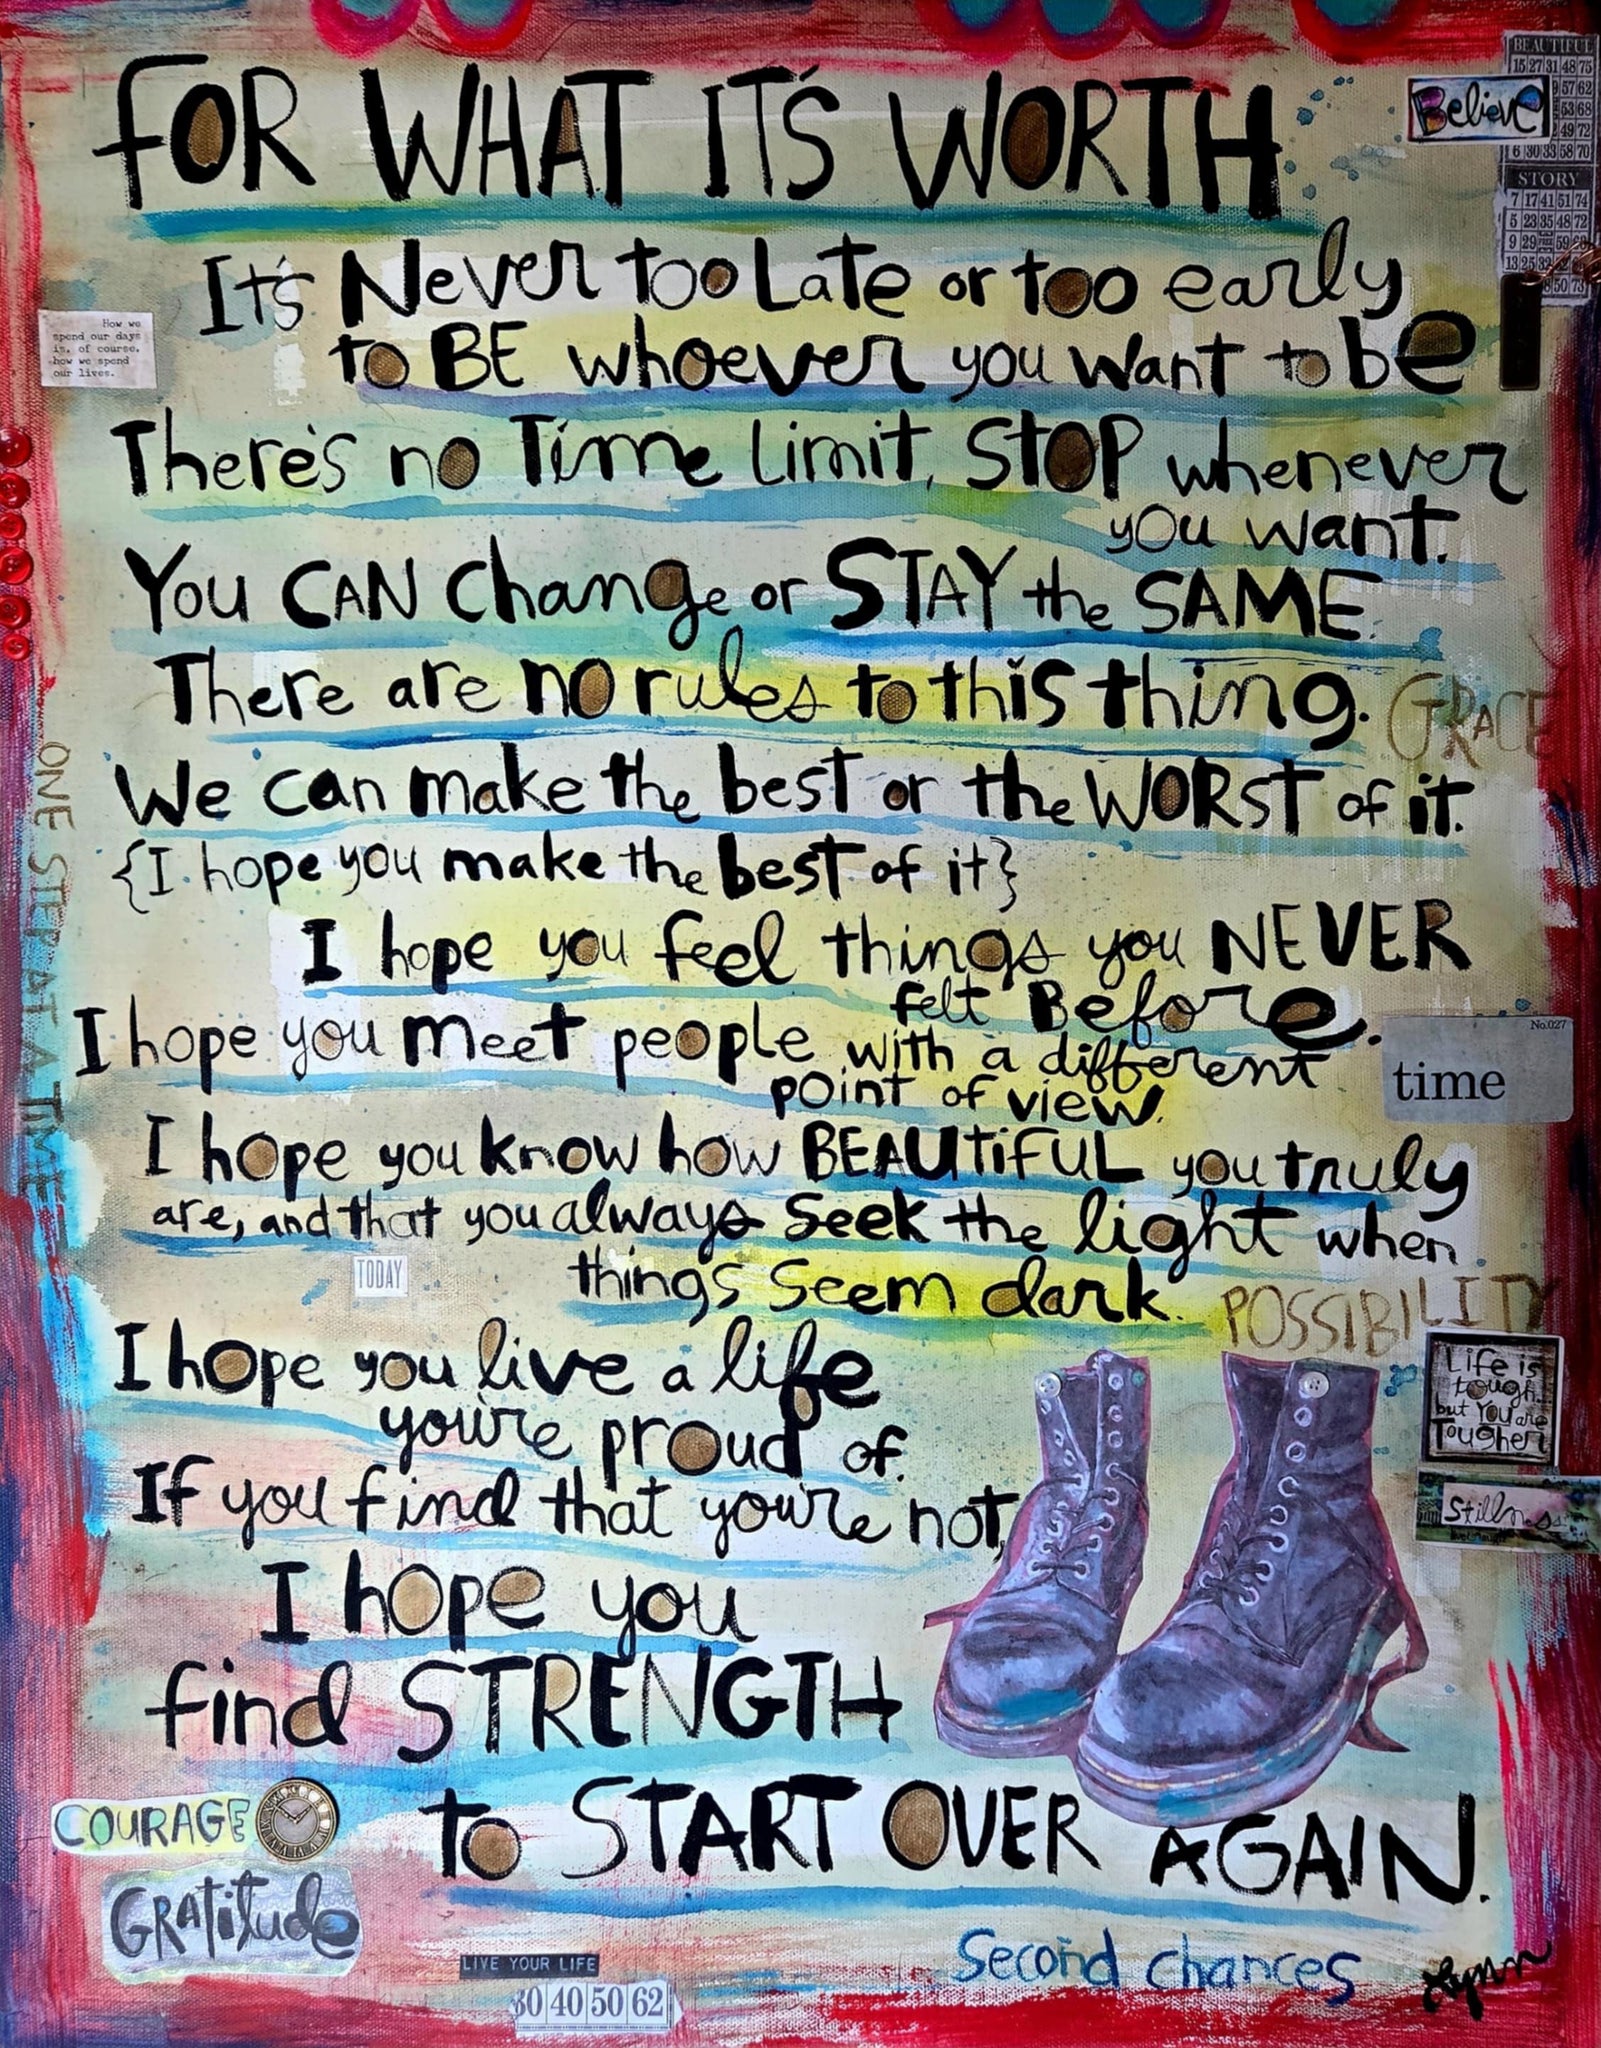 BEAUTIFUL
15 27 31 48 75
Believe
57 62
53 68
49 72
6 30 33 58 70
STORY
7 17 41 51 74
5 23 35 48 72
9 29 FREE 59
13 25 32
50 73
FOR WHAT IT'S WORTH
It's Never too Late or too early
to BE whoever you want to be
How we
spend our days
is, of course,
how we spend
our lives.
There's no Time limit, STOP whenever
you want.
You CAN change or STAY the SAME.
There are no rules to this thing.
GRACE
We can make the best or the WORST of it.
{I hope you make the best of it}
ONE STEP AT A TIME
I hope you feel things you NEVER
felt Before.
I hope you meet people with a different
point of view.
No.027
time
I hope you know how BEAUTIFUL you truly
are, and that you always seek the light when
things seem dark.
TODAY
POSSIBILITY
I hope you live a life
you're proud of.
If you find that you're not,
I hope you
find STRENGTH
to START OVER AGAIN.
Life is
tough...
but you are
Tougher
Stillness
COURAGE
GRATitude
LIVE YOUR LIFE
30 40 50 62
Second chances
Lynn